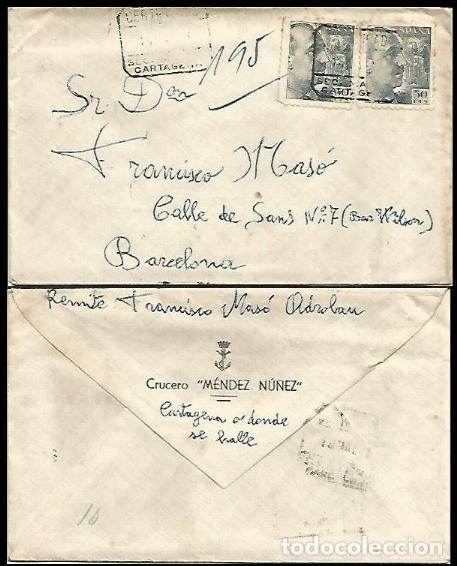 CERTIF
SEC
CARTAGE
195
ESPAÑA
50
CTS
SEC
CARTAGE
Sr. Don
Francisco Masó
Calle de Sans Nº 7 (Bar Wilson)
Barcelona
Remite Francisco Masó Adroban
Crucero "MÉNDEZ NÚÑEZ"
Cartagena o donde
se halle
10
todocoleccion.net